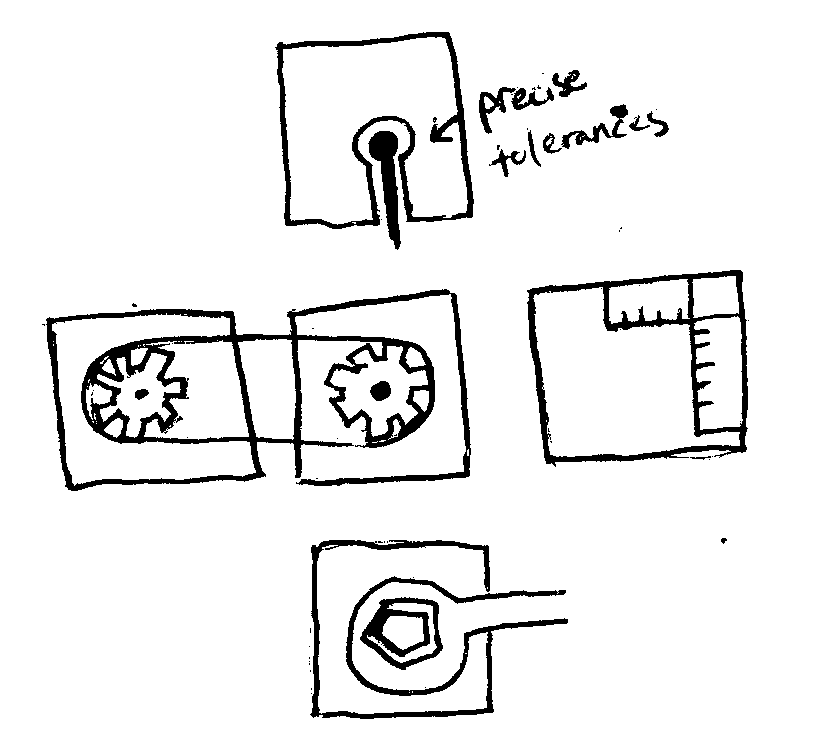 precise
tolerances